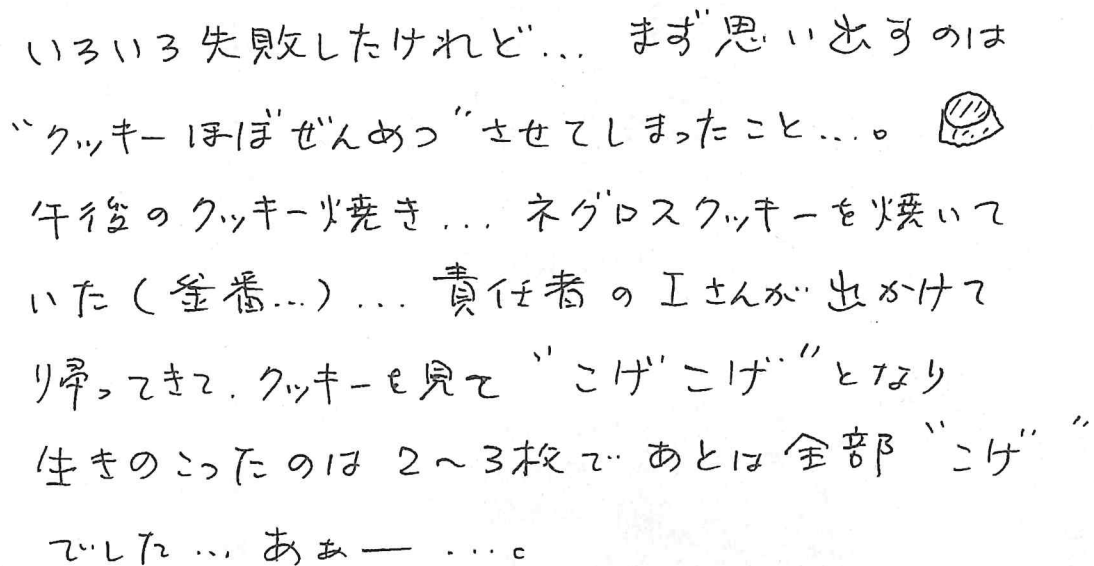 いろいろ失敗したけれど... まず思い出すのは
“クッキーほぼぜんめつ”させてしまったこと...。
午後のクッキー焼き... ネグロスクッキーを焼いて
いた(釜番...)... 責任者のIさんが出かけて
帰ってきて.クッキーを見て“こげこげ”となり
生きのこったのは2~3枚であとは全部“こげ”
でした... あぁー ...。